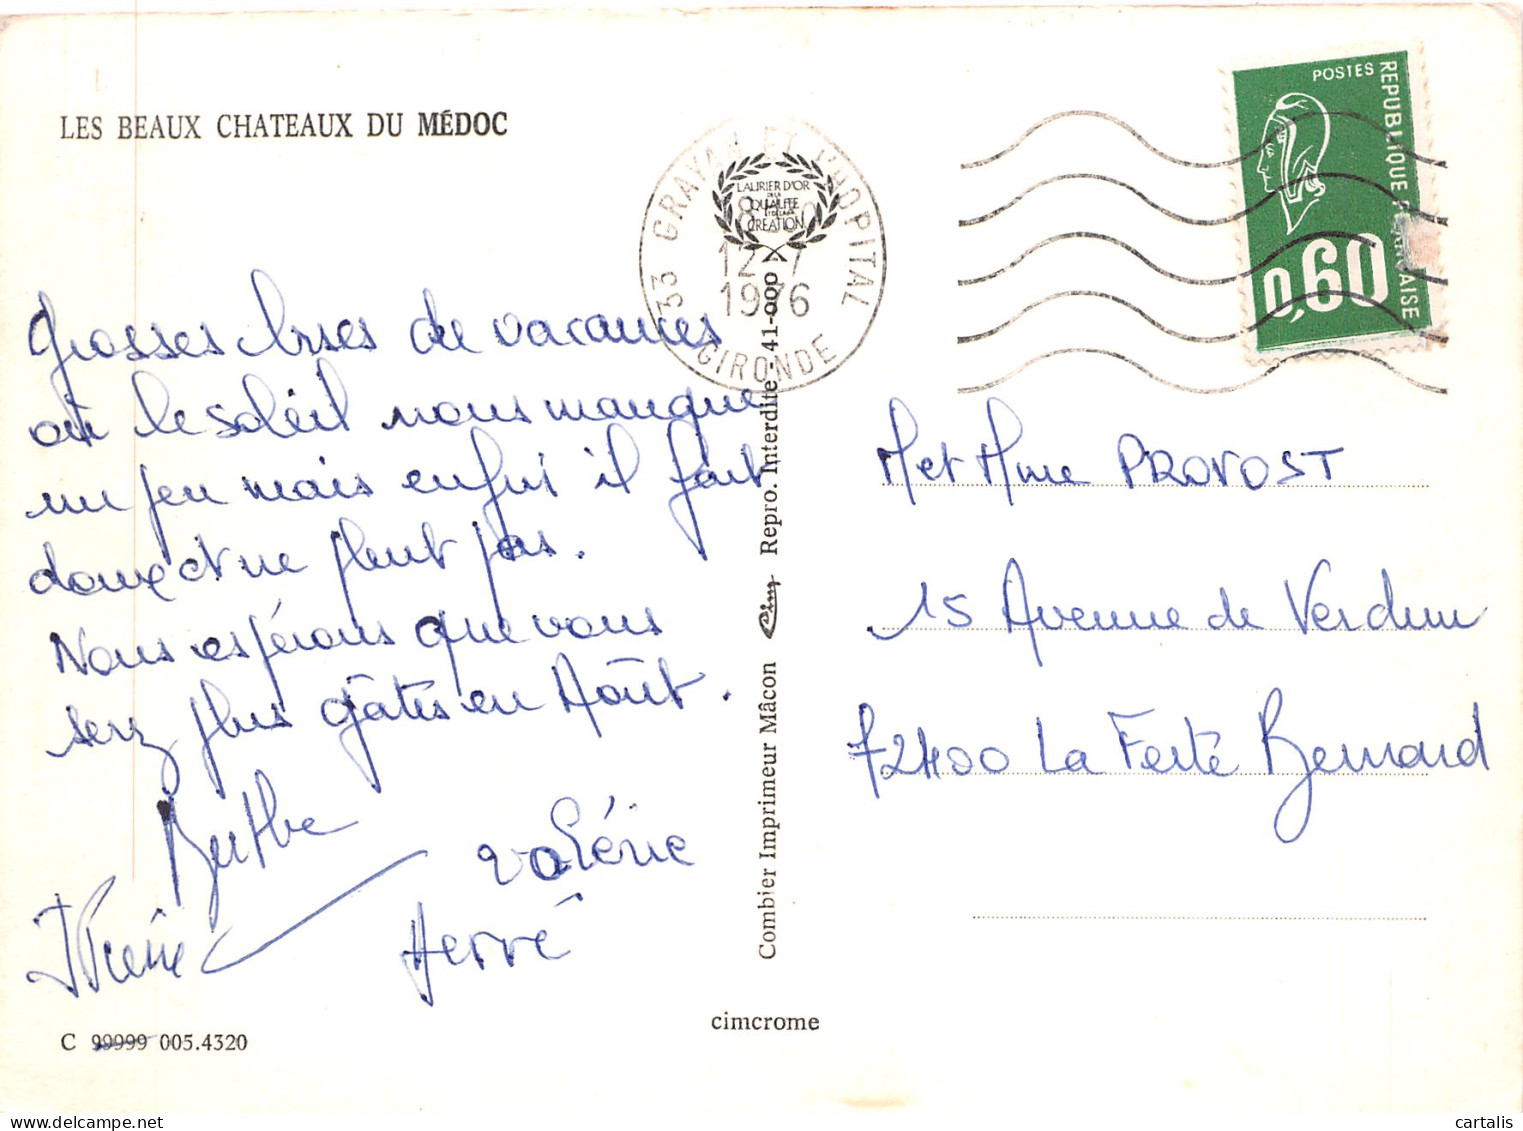 LES BEAUX CHATEAUX DU MÉDOC
Grosses bises de vacances
où le soleil nous manque
un peu mais enfin il fait
doux et ne pleut pas.
Nous espérons que vous
serez plus gâtés en Août.
Berthe
Valérie
Hervé
C 99999 005.4320
33 GRAYAN ET L'HOPITAL
GIRONDE
12-7
1976
LAURIER D'OR
DE LA
QUALITE
ET DE LA
CREATION
Combier Imprimeur Mâcon Cim Repro. Interdite - 41-000
cimcrome
POSTES
REPUBLIQUE FRANCAISE
0,60
M et Mme PROVOST
15 Avenue de Verdun
72400 La Ferté Bernard
cartalis